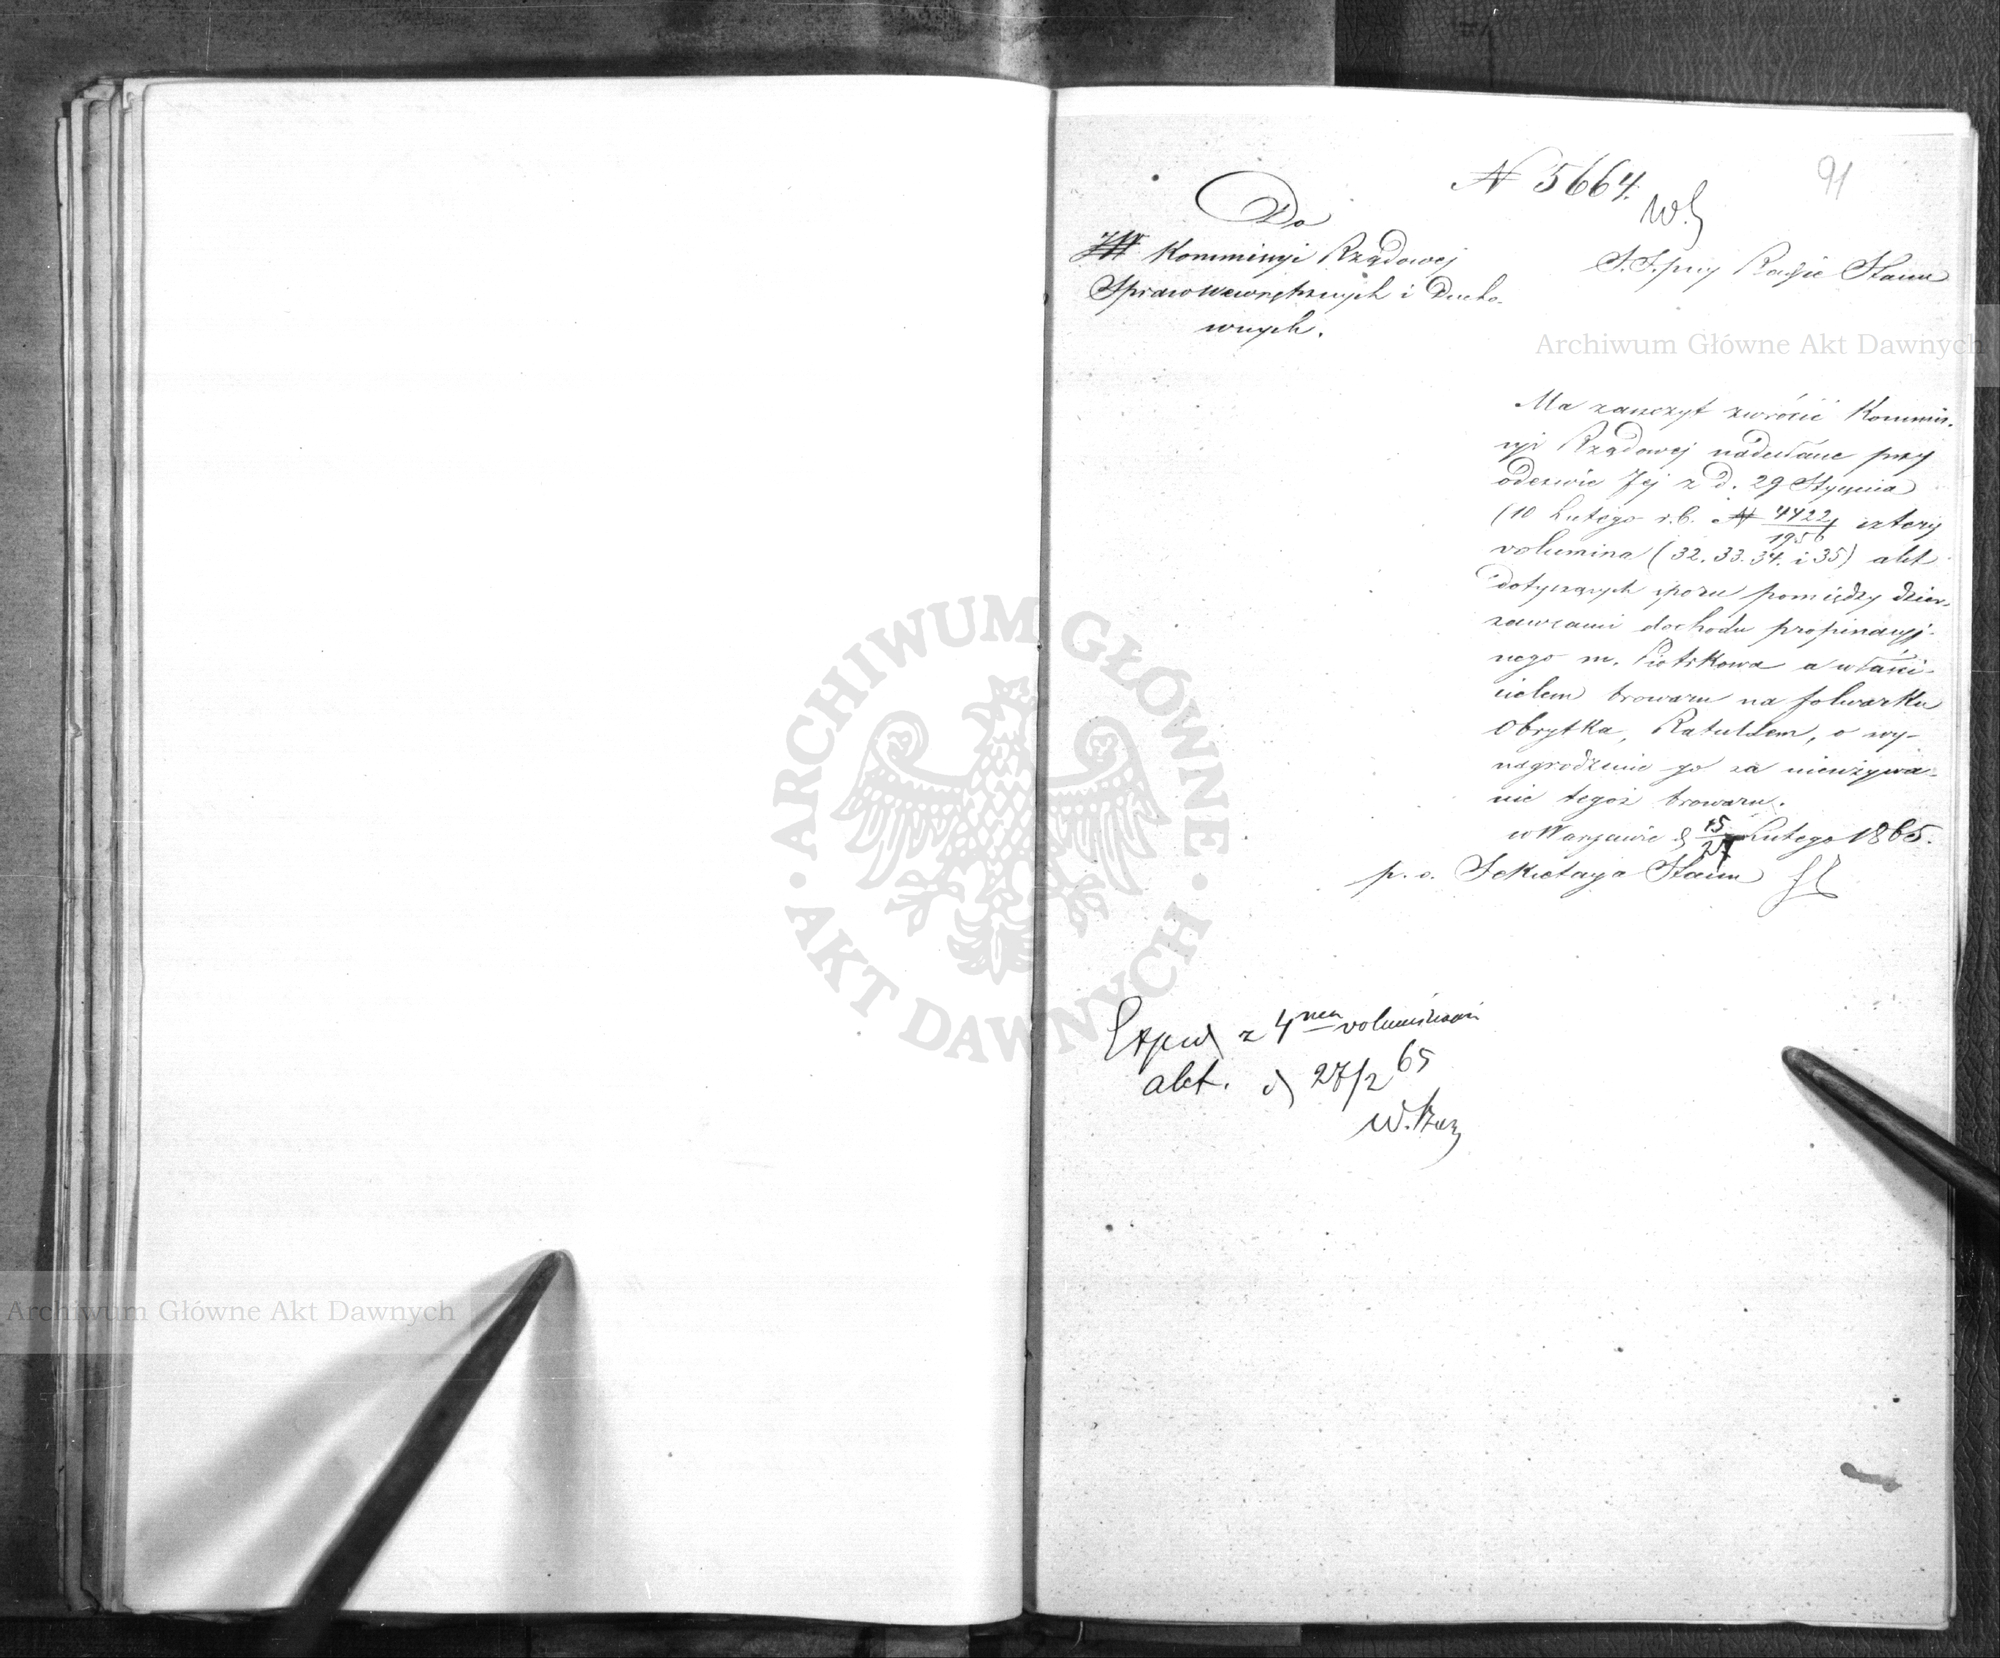 91
N 5664.
Do
Kommissyi Rządowej
Spraw Wewnętrznych i Ducho-
wnych.
S. S. przy Radzie Stanu
Ma zaszczyt zwrócić Kommis-
syi Rządowej nadesłane przy
odezwie Jej z d. 29 Stycznia
(10 Lutego r.b. N 4422/1956 cztery
volumina (32. 33. 34. i 35) akt
dotyczących sporu pomiędzy dzier-
zawcami dochodu propinacyj-
nego m. Piotrkowa a właści-
cielem browaru na folwarku
Obrytka, o wy-
nagrodzenie go za nieużywa-
nie tegoż browaru.
w Warszawie d 15/27 Lutego 1865.
p. o. Sekretarza Stanu
Exped z 4ma voluminami
akt. d 27/2 65
Archiwum Główne Akt Dawnych
Archiwum Główne Akt Dawnych
ARCHIWUM GŁÓWNE
AKT DAWNYCH